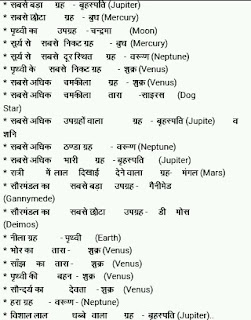 * सबसे बड़ा ग्रह - बृहस्पति (Jupiter)
* सबसे छोटा ग्रह - बुध (Mercury)
* पृथ्वी का उपग्रह - चन्द्रमा (Moon)
* सूर्य से सबसे निकट ग्रह - बुध (Mercury)
* सूर्य से सबसे दूर स्थित ग्रह - वरूण (Neptune)
* पृथ्वी के सबसे निकट ग्रह - शुक्र (Venus)
* सबसे अधिक चमकीला ग्रह - शुक्र (Venus)
* सबसे अधिक चमकीला तारा -साइरस (Dog
Star)
* सबसे अधिक उपग्रहों वाला ग्रह - बृहस्पति (Jupite) व
शनि
* सबसे अधिक ठण्डा ग्रह - वरूण (Neptune)
* सबसे अधिक भारी ग्रह - बृहस्पति (Jupiter)
* रात्री में लाल दिखाई देने वाला ग्रह- मंगल (Mars)
* सौरमंडल का सबसे बडा उपग्रह - गैनीमेड
(Gannymede)
* सौरमंडल का सबसे छोटा उपग्रह - डी मोस
(Deimos)
* नीला ग्रह - पृथ्वी (Earth)
* भोर का तारा - शुक्र (Venus)
* साँझ का तारा - शुक्र (Venus)
* पृथ्वी की बहन - शुक्र (Venus)
* सौन्दर्य का देवता - शुक्र (Venus)
* हरा ग्रह - वरूण - (Neptune)
* विशाल लाल धब्बे वाला ग्रह - बृहस्पति (Jupiter)..